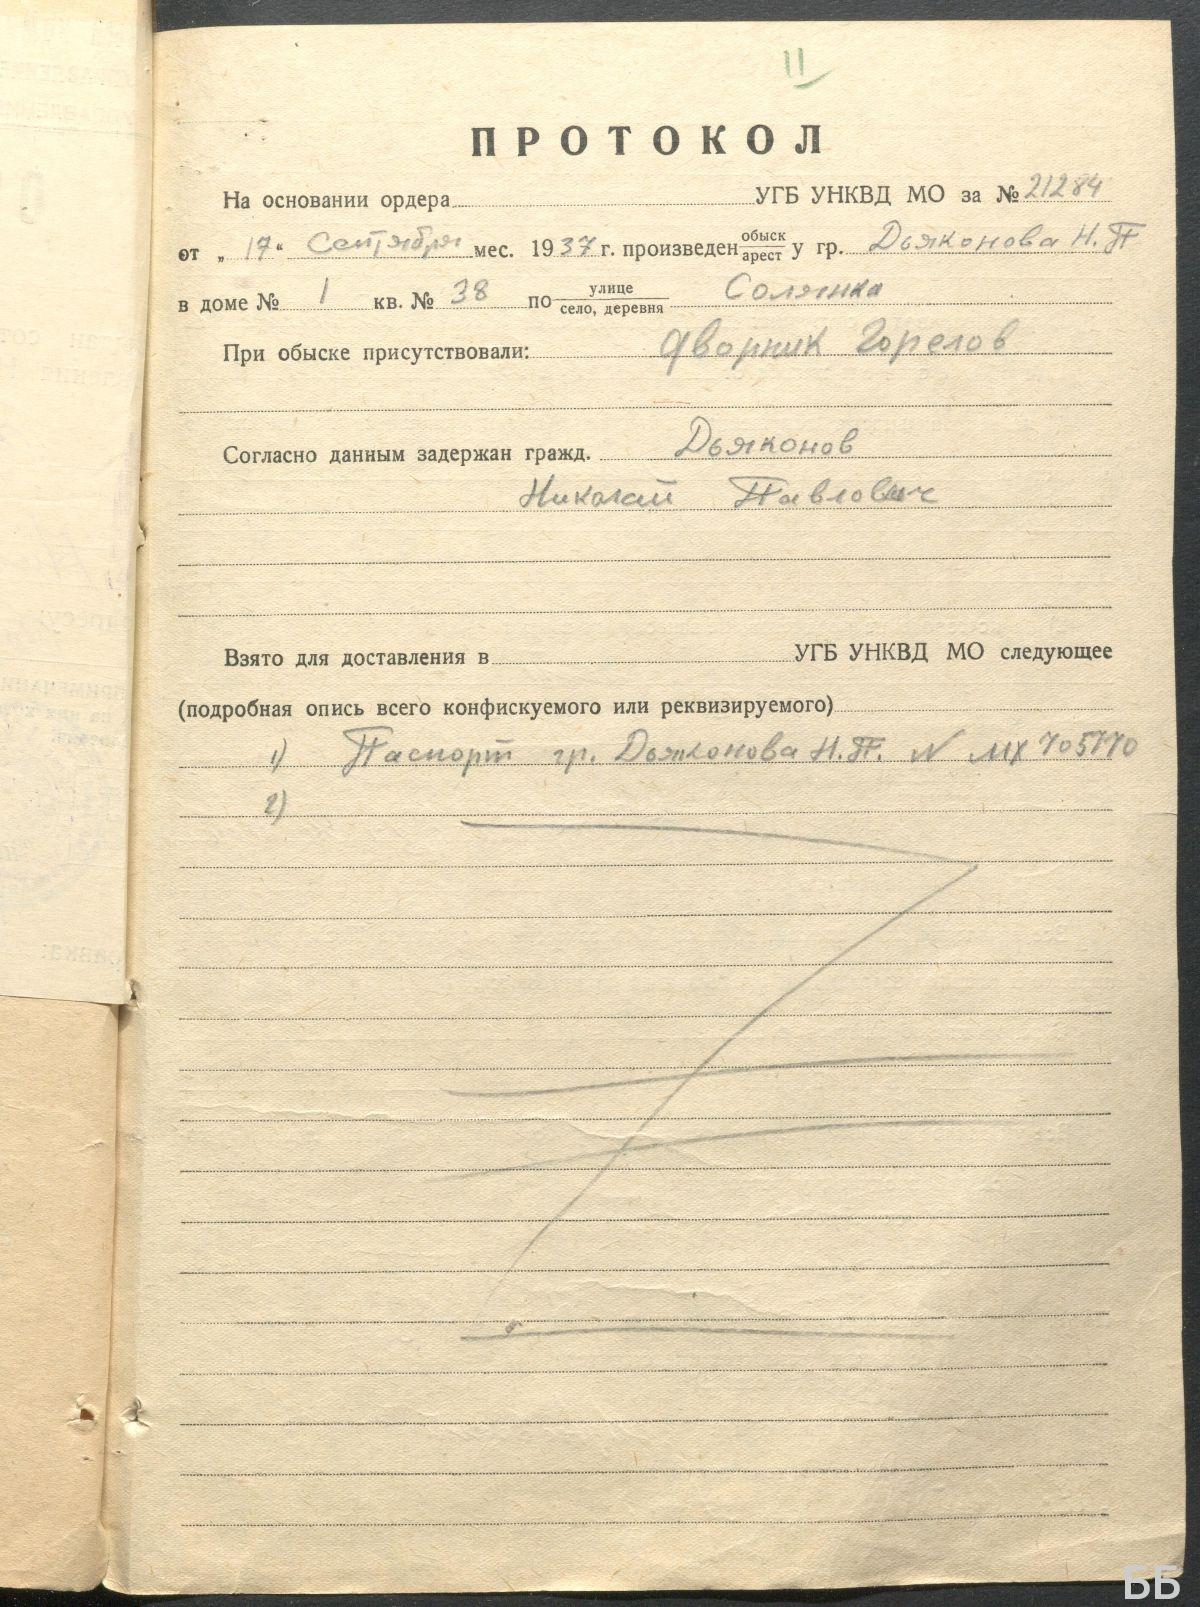 11
ПРОТОКОЛ
На основании ордера УГБ УНКВД МО за № 21284
от „ 17 “ Сентября мес. 1937 г. произведен обыск арест у гр. Дьяконова Н.П
в доме № 1 кв. № 38 по улице село, деревня Солянка
При обыске присутствовали: дворник Горелов
Согласно данным задержан гражд. Дьяконов
Николай Павлович
Взято для доставления в УГБ УНКВД МО следующее
(подробная опись всего конфискуемого или реквизируемого)
1) Паспорт гр. Дьяконова Н.П. N МХ 705770
2)
ББ